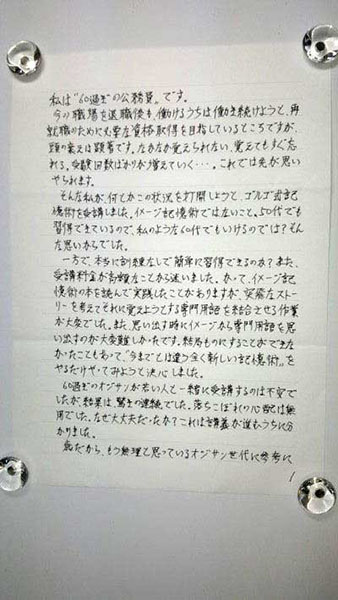 私は"60過ぎの公務員"です。
今の職場を退職後も、働けるうちは働き続けようと、再
就職のためにも必要な資格取得を目指しているところですが、
頭の衰えは顕著です。なかなか覚えられない、覚えてもすぐ忘
れる。受験回数ばかりが増えていく…。これでは先が思い
やられます。
そんな私が、何とかこの状況を打開しようと、ゴルゴ式記
憶術を受講しました。イメージ記憶術ではないこと。50代でも
習得できているので、私のような60代でもいけるのでは?そん
な思いからでした。
一方で、本当に訓練なしで簡単に習得できるのか?また、
受講料金が高額なことから迷いました。かつて、イメージ記
憶術の本を読んで実践したことがありますが、突飛なストー
リーを考えてそれに覚えようとする専門用語を結合させる作業
が大変でした。また、思い出す時にイメージから専門用語を思
い出すのが大変難しかったです。結局ものにすることができな
かったこともあって、"今までとは違う全く新しい記憶術"を
やるだけやってみようと決心しました。
60過ぎのオジサンが若い人と一緒に受講するのは不安で
したが、結果は、驚きの連続でした。落ちこぼれの心配は無
用でした。なぜ大丈夫だったか?これは講義が進むうちに分
かりました。
だから、もう無理と思っているオジサン世代に参考に
1